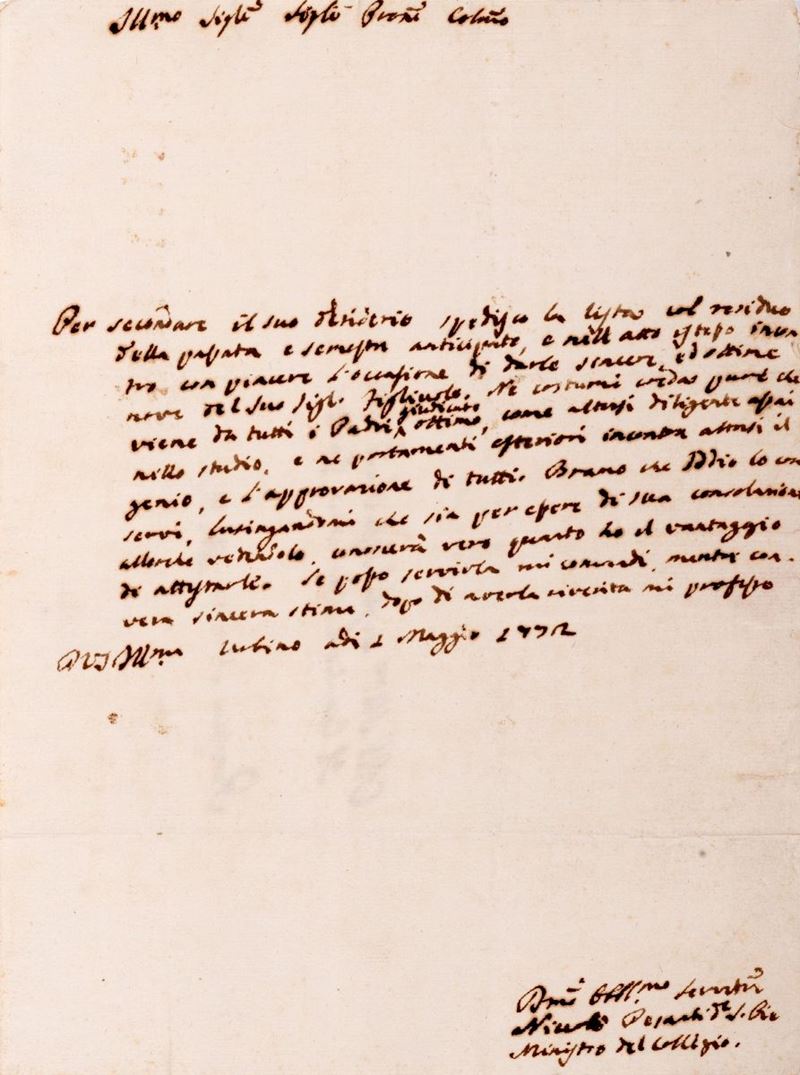 Ill.mo Sig.re Sig.re Pron.e Col.mo
Per secondare il suo desiderio spedisco la lista col residuo
della passata e semestre anticipato, e nell'atto istesso incon
tro con piacere l'occasione di darle sincere, ed ottime
nove del suo Sig.re Figliuolo. Ne costumi credas pure che
viene da tutti i Padri giudicato ottimo, come altresì diligente assai
nello studio, e ne portamenti esteriori incontra altresì il
genio, e l'approvazione di tutti. Bramo che Iddio lo con
servi, lusingandomi che sia per essere di sua consolazione
allorchè vedendolo, conoscerà vero quanto ho il vantaggio
di attestarle. Se posso servirla mi comandi, mentre con
vera sincera stima, dopo di averla riverita mi professo
D V S Ill.ma Urbino adi 1 Maggio 1772
D.mo Obbl.mo Servitor
Niccolò de S. Pio
Ministro del Collegio.